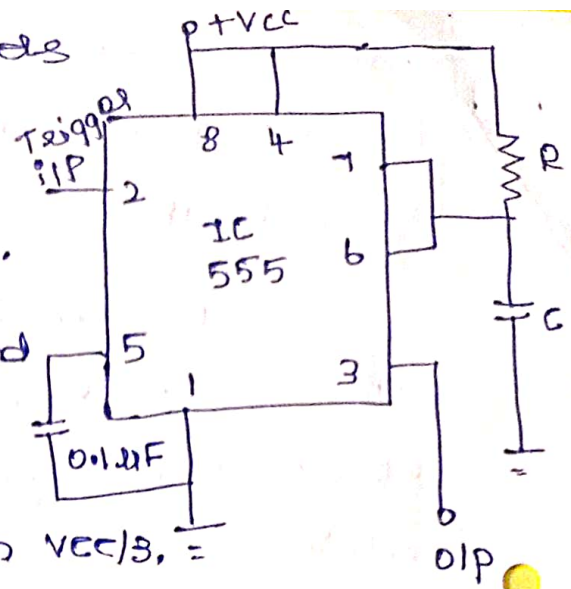 +Vcc
Trigger
i/P
8 4
7
2
IC
555
6
5
3
1
R
C
0.1μF
Vcc/3.
O/P